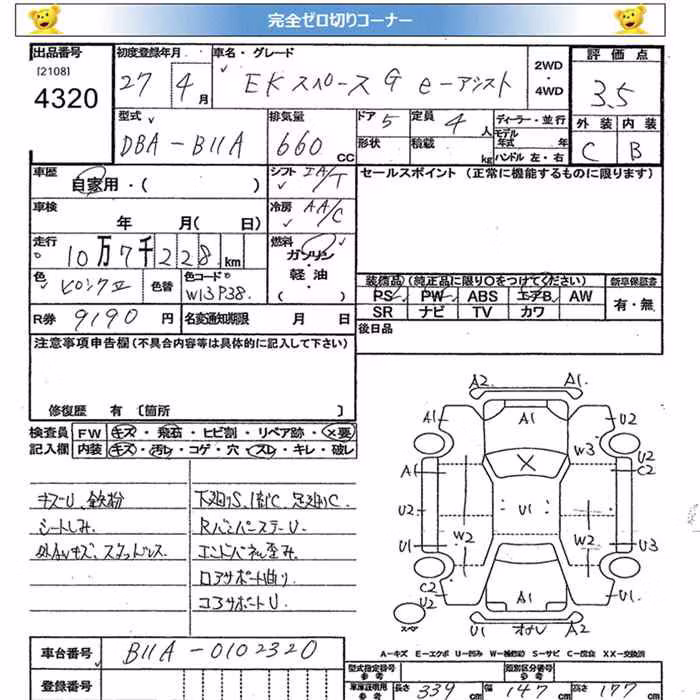 完全ゼロ切りコーナー
出品番号
[2108]
4320
初度登録年月
27 4月
車名・グレード
EKスペース G e-アシスト
2WD
・
4WD
評価点
3.5
外装 内装
C B
型式
DBA-B11A
排気量
660 CC
ドア 5
形状
定員 4 人
積載 kg
ディーラー・並行
モデル
年式 年
ハンドル 左・右
車歴
自家用・( )
シフト IA/T
セールスポイント (正常に機能するものに限ります)
車検
年 月( 日)
冷房 AA/C
走行
10万7千228km
燃料
ガソリン
・
軽油
・
( )
色
色替
色コード
W13P38.
装備品 (純正品に限り○をつけてください)
新車保証書
PS PW ABS エアB AW
SR ナビ TV カワ
有・無
R券 9190 円
名変通知期限 月 日
後日品
注意事項申告欄(不具合内容等は具体的に記入して下さい)
修復歴 有 〔箇所 〕
検査員 FW キズ・飛石・ヒビ割・リペア跡・×要
記入欄 内装 キズ・汚レ・コゲ・穴・スレ・キレ・破レ
キズU、鉄粉
シートしみ.
下廻りS、
C.
RバンパーステーU.
エンドパネル歪み.
コアサポート曲り
コアサポートU
A2 A1
A1 A1 U2
W3 U2
A1 C2
U2 U1
U1 W2 W2 U3
C2
U2 A1 U1.
スペア
U1 A2
A-キズ E-エクボ U-凹み W-補修跡 S-サビ C-腐食 XX-交換済
車台番号 B11A-0102320
登録番号
型式指定番号
参考
類別区分番号
参考
車庫証明用
参考
長さ 339 cm 幅 147 cm 高さ 177 cm